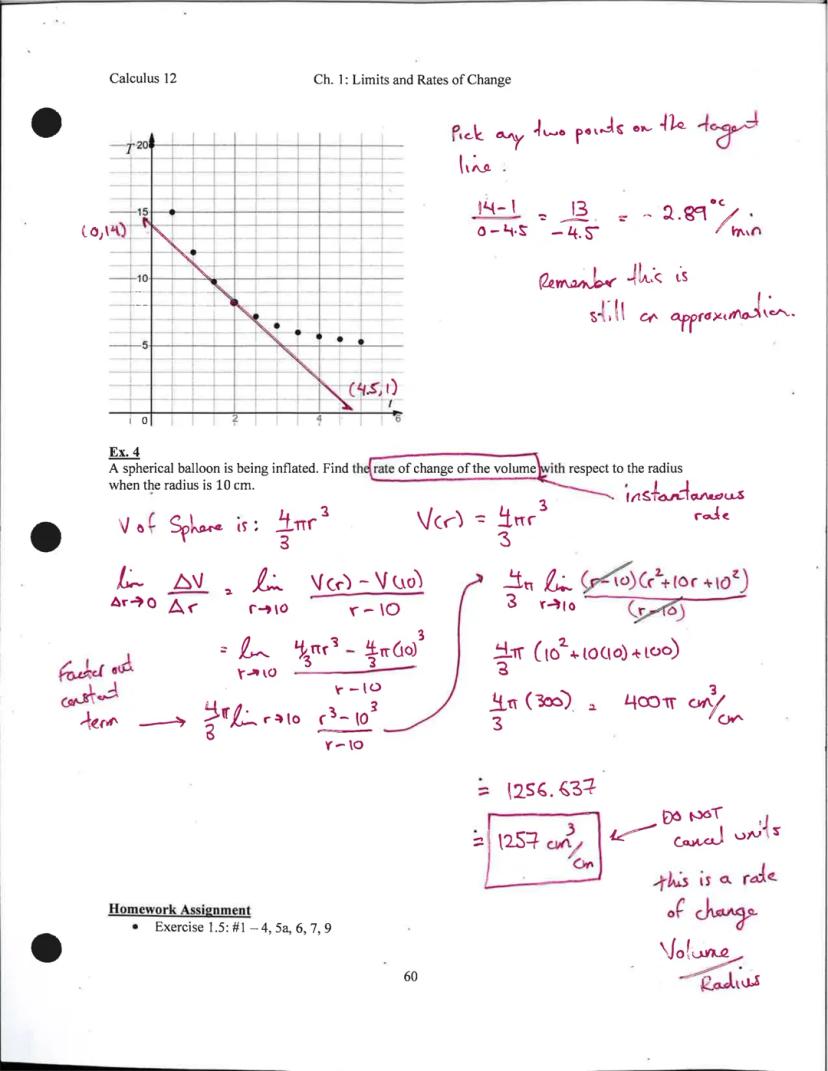 Calculus 12
Ch. 1: Limits and Rates of Change
Pick any two points on the tagent
line.
14-1 / 0-4.5 = 13 / -4.5 = - 2.89 °C/min
Remember this is
still an approximation.
T 20
15
(0,14)
10
5
(4.5,1)
t
0
2
4
6
Ex. 4
A spherical balloon is being inflated. Find the rate of change of the volume with respect to the radius
when the radius is 10 cm.
instantaneous
rate
V of Sphere is: 4/3 πr³
V(r) = 4/3 πr³
lim Δr→0 ΔV/Δr = lim r→10 V(r) – V(10) / r – 10
= lim r→10 4/3 πr³ – 4/3 π(10)³ / r – 10
Factor out
constant
term → 4/3 π lim r→10 r³ – 10³ / r – 10
4/3 π lim r→10 (r–10)(r²+10r+10²) / (r–10)
4/3 π (10²+10(10)+100)
4/3 π (300) = 400π cm³/cm
≐ 1256.637
≐ 1257 cm³/cm
DO NOT
Cancel units
this is a rate
of change
Volume
Radius
Homework Assignment
• Exercise 1.5: #1 – 4, 5a, 6, 7, 9
60